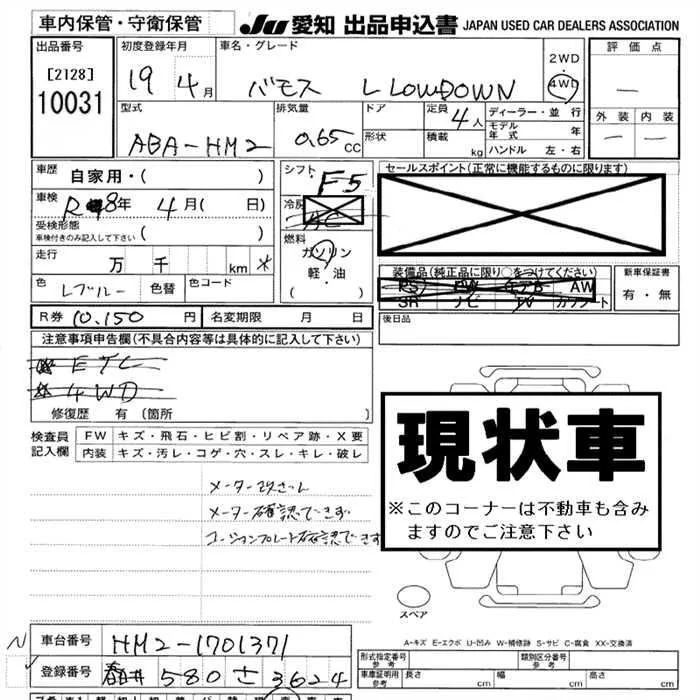 車内保管・守衛保管 JU 愛知 出品申込書 JAPAN USED CAR DEALERS ASSOCIATION
出品番号 [2128] 10031
初度登録年月 19 4月
車名・グレード バモス L LOWDOWN
2WD 4WD
評価点 —
外装 内装
— —
型式 ABA-HM2
排気量 0.65 CC
ドア 形状
定員 4人
積載 kg
ディーラー・並行
モデル年式 年
ハンドル 左・右
車歴 自家用・( )
車検 R 8年 4月( 日)
受検形態 車検付きのみ記入して下さい ( )
走行 万 千 km *
色 Lブルー 色替 色コード
シフト F5
冷房 AC
燃料 ガソリン
軽・油
( )
セールスポイント(正常に機能するものに限ります)
装備品(純正品に限り○をつけてください)
PS PW エアB AW
SR ナビ TV カワシート
新車保証書
有・無
R券 10,150 円 名変期限 月 日
後日品
注意事項申告欄(不具合内容等は具体的に記入して下さい)
ETC
4WD
修復歴 有(箇所 )
検査員記入欄
FW キズ・飛石・ヒビ割・リペア跡・X要
内装 キズ・汚レ・コゲ・穴・スレ・キレ・破レ
メーター改ざん
メーター確認できず
コーションプレート確認できず
現状車
※このコーナーは不動車も含み
ますのでご注意下さい
スペア
A-キズ E-エクボ U-凹み W-補修跡 S-サビ C-腐食 XX-交換済
N 車台番号 HM2-1701371
登録番号 春日井 580 さ 3624
形式指定番号 参考
類別区分番号 参考
車庫証明用 参考 長さ cm 幅 cm 高さ cm